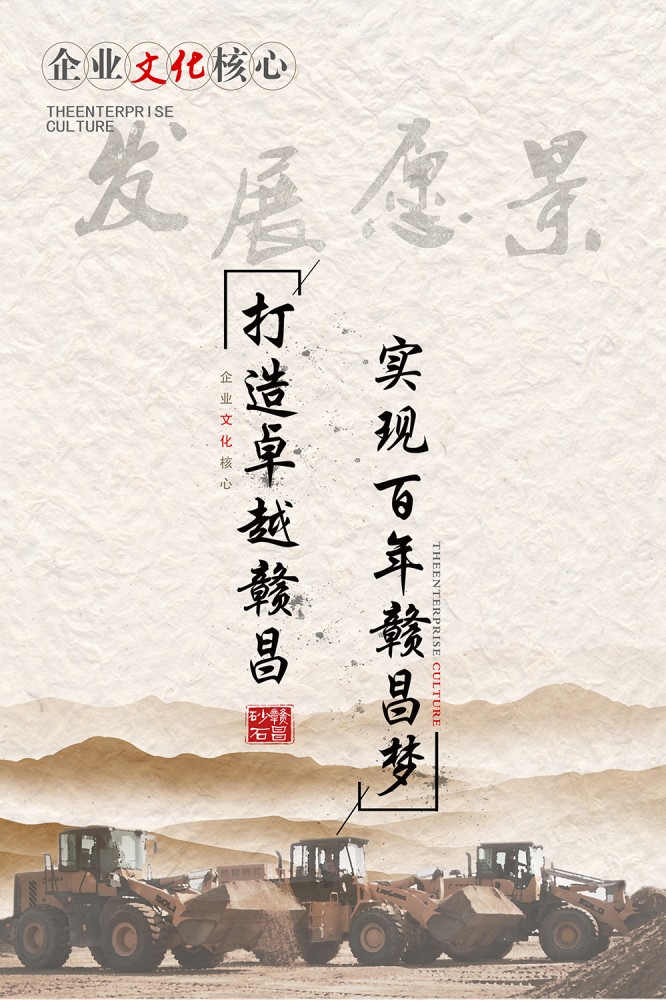 企业文化核心
THEENTERPRISE
CULTURE
发展愿景
打造卓越赣昌
企业文化核心
实现百年赣昌梦
THEENTERPRISE CULTURE
赣昌
砂石